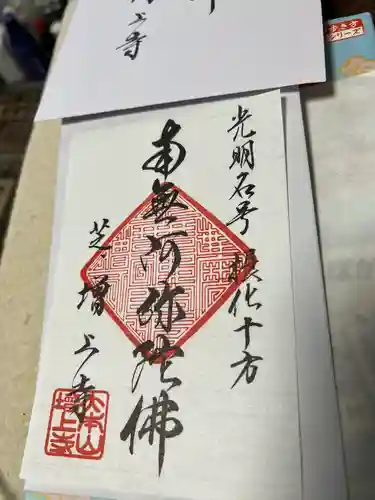 光明名号摂化十方
南無阿弥陀佛
芝・増上寺
大本山
増上寺
上寺
歩き方
シリーズ